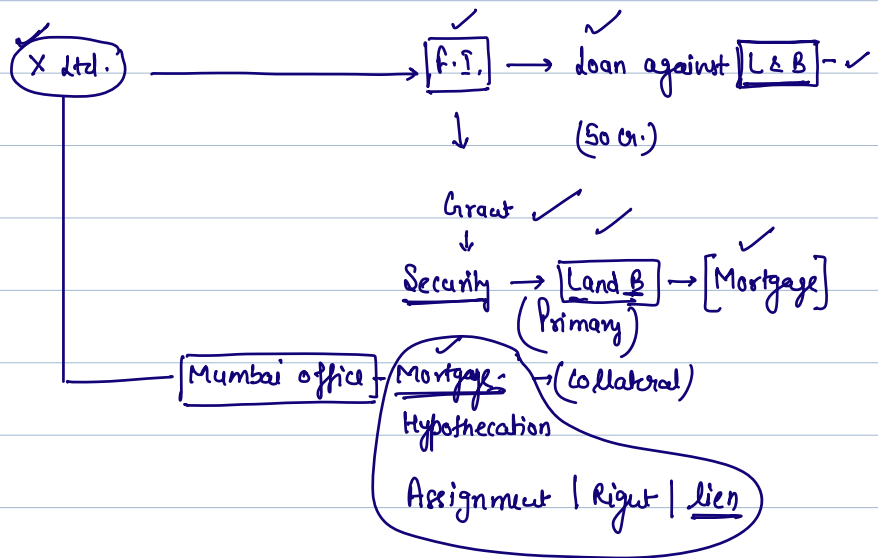 X Ltd. → F.I. → Loan against L & B - ✓
↓ (50 cr.)
Grant ✓
↓
Security → Land B → [Mortgage]
(Primary)
Mumbai office - Mortgage → (Collateral)
Hypothecation
Assignment | Right | lien